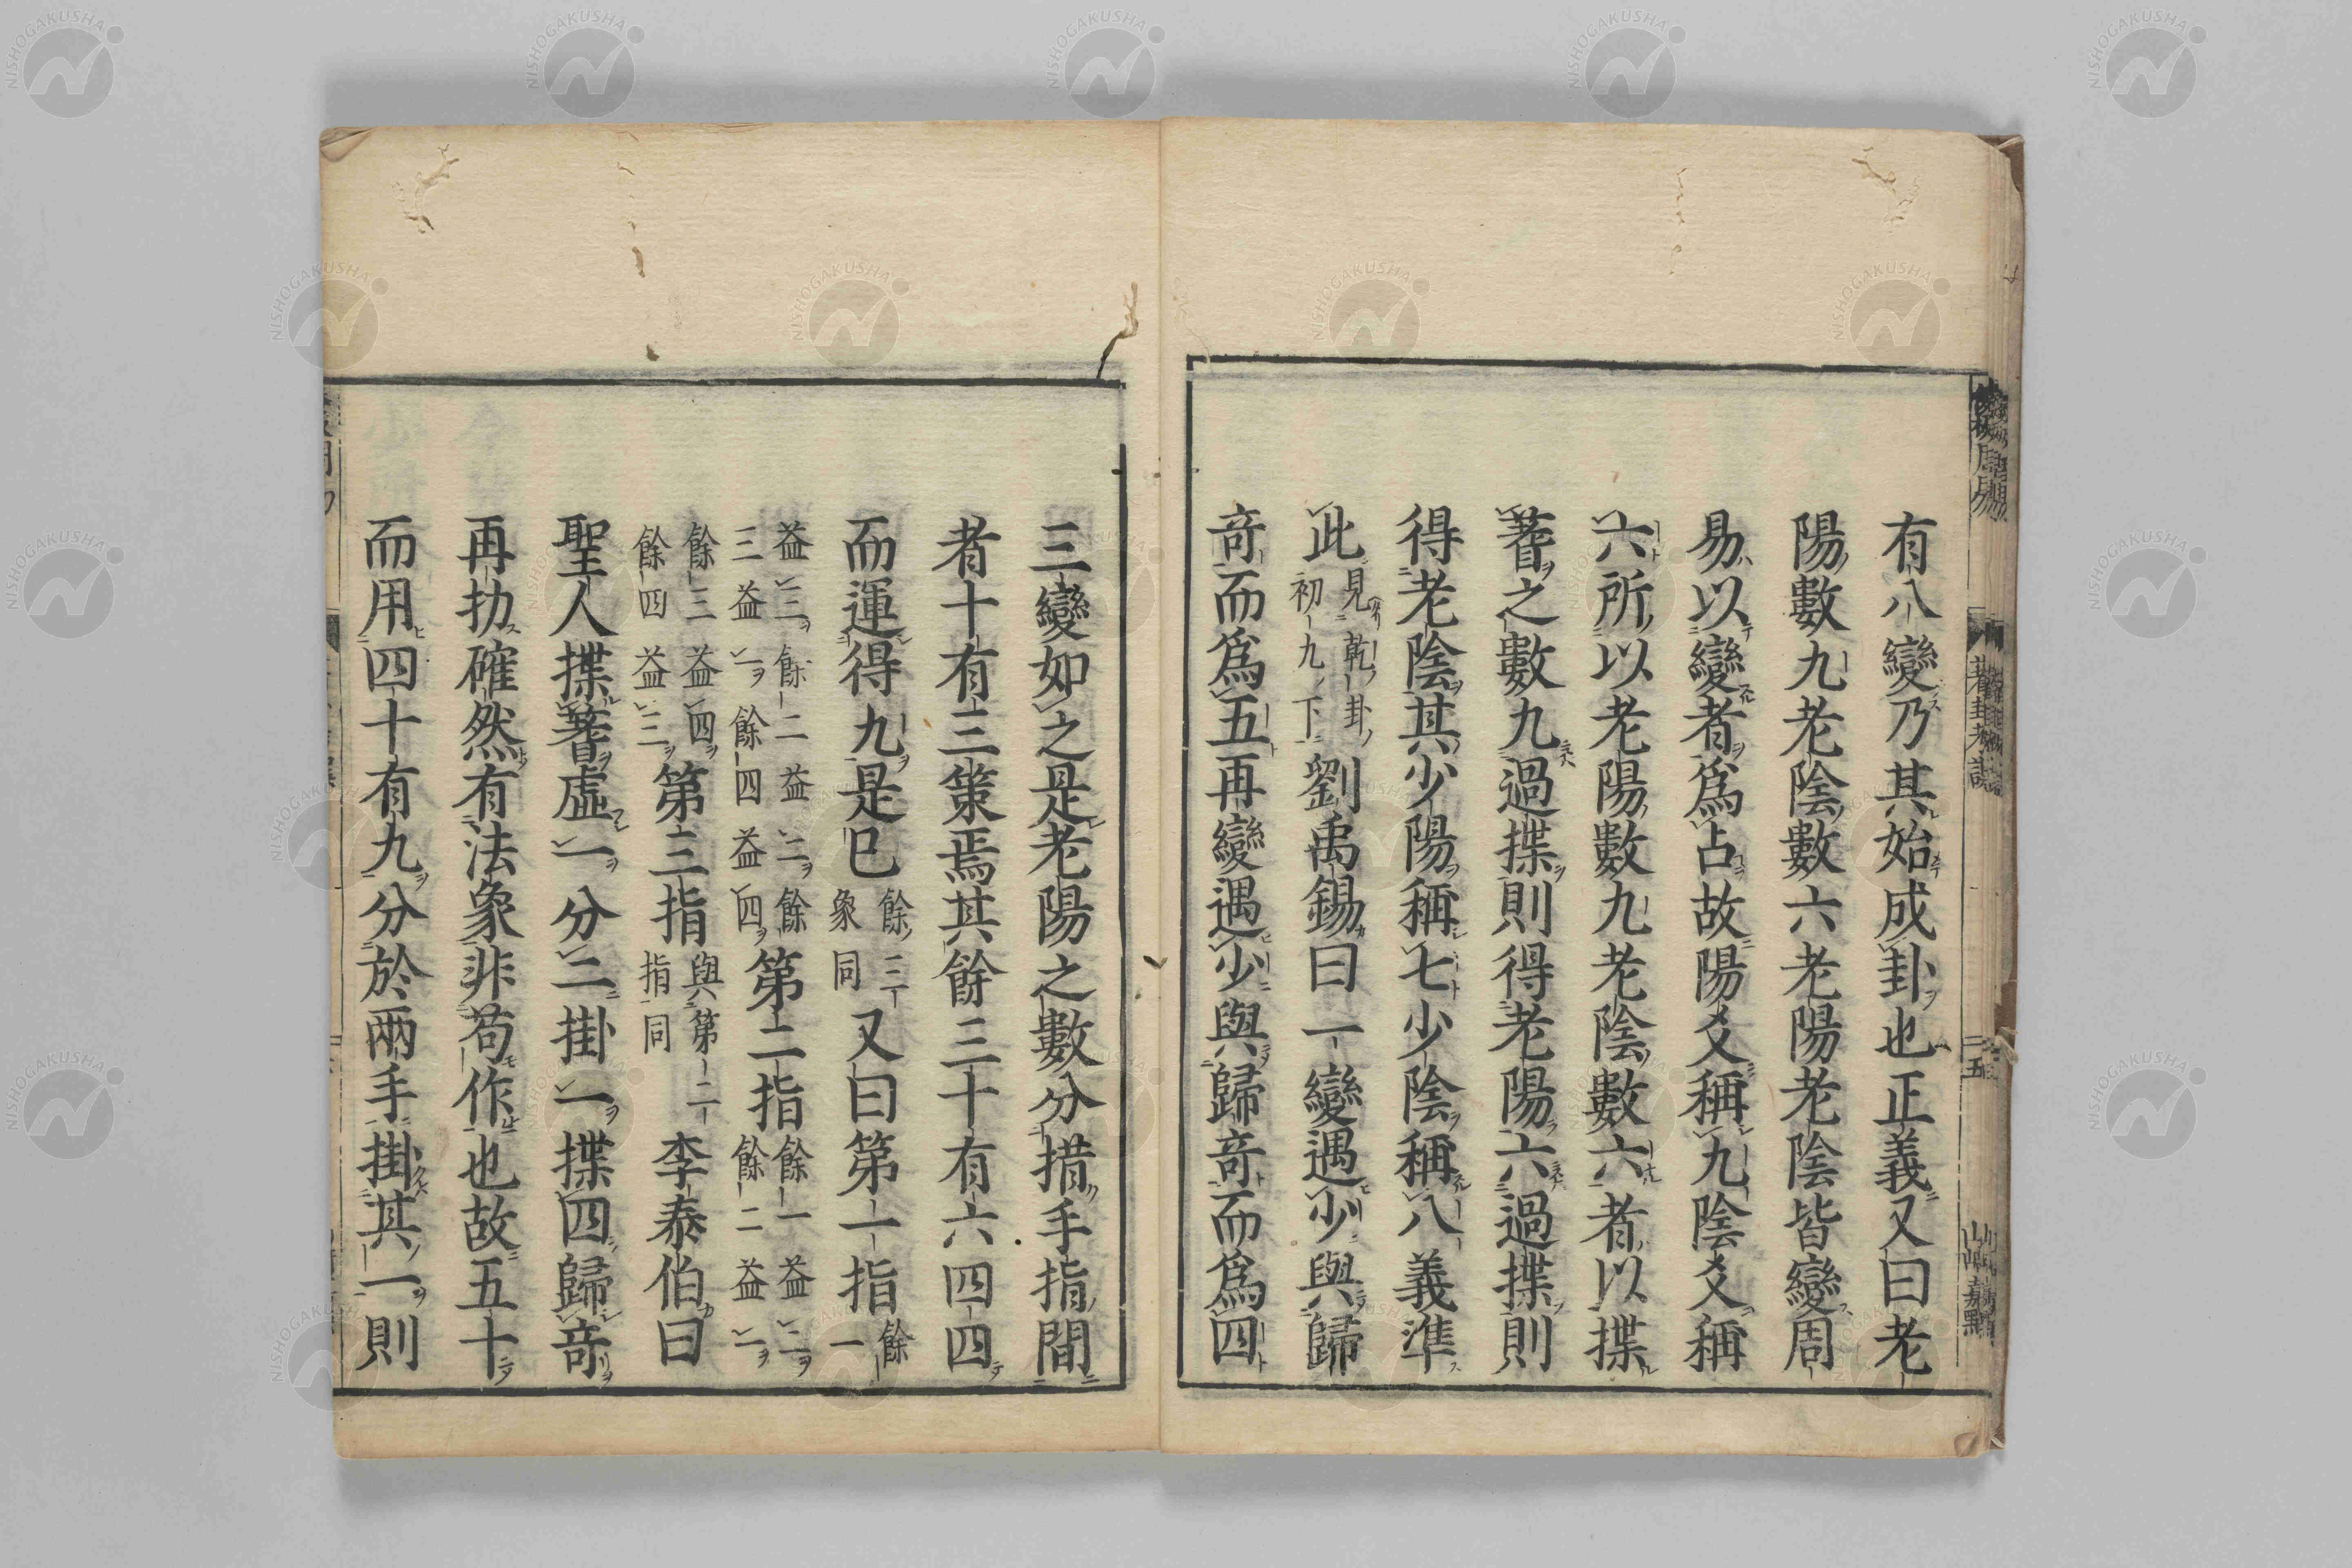 有八變乃其始成卦也正義又曰老
陽數九老陰數六老陽老陰皆變周
易以變者爲占故陽爻稱九陰爻稱
六所以老陽數九老陰數六者以揲
蓍之數九過揲則得老陽六過揲則
得老陰其少陽稱七少陰稱八義準
此見乾卦初九下劉禹錫曰一變遇少與歸
奇而爲五再變遇少與歸奇而爲四
三變如之是老陽之數分措手指間
者十有三策焉其餘三十有六四四
而運得九是已餘三象同又曰第一指餘一
益三餘二益二餘三益一餘四益四第二指餘一益二餘二益一
餘三益四餘四益三第三指與第二指同李泰伯曰
聖人揲蓍虛一分二掛一揲四歸奇
再扐確然有法象非苟作也故五十
而用四十有九分於兩手掛其一則
蓍卦考誤
五
山崎嘉點
NISHOGAKUSHA